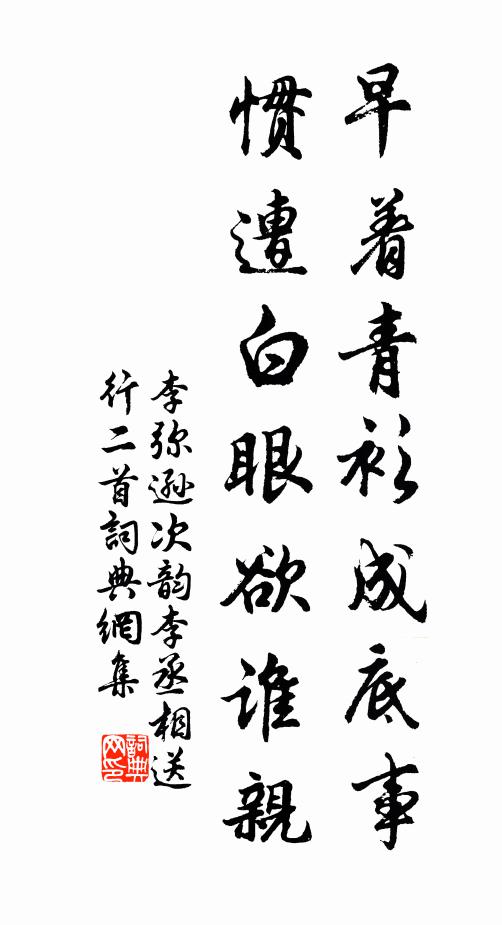 早着青衫成底事
慣遭白眼欲誰親
李弥遜次韵李丞相送
行二首詞典網集
詞典
网印